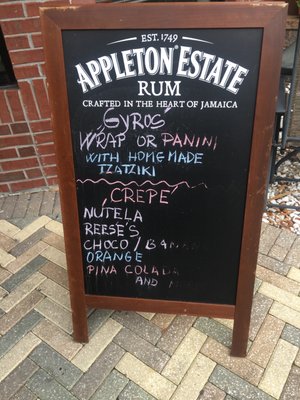 EST. 1749
APPLETON ESTATE
RUM
CRAFTED IN THE HEART OF JAMAICA
GYROS
WRAP OR PANINI
WITH HOMEMADE
TZATZIKI
CREPE
NUTELA
REESE'S
CHOCO / BANANA
ORANGE
PINA COLADA
AND